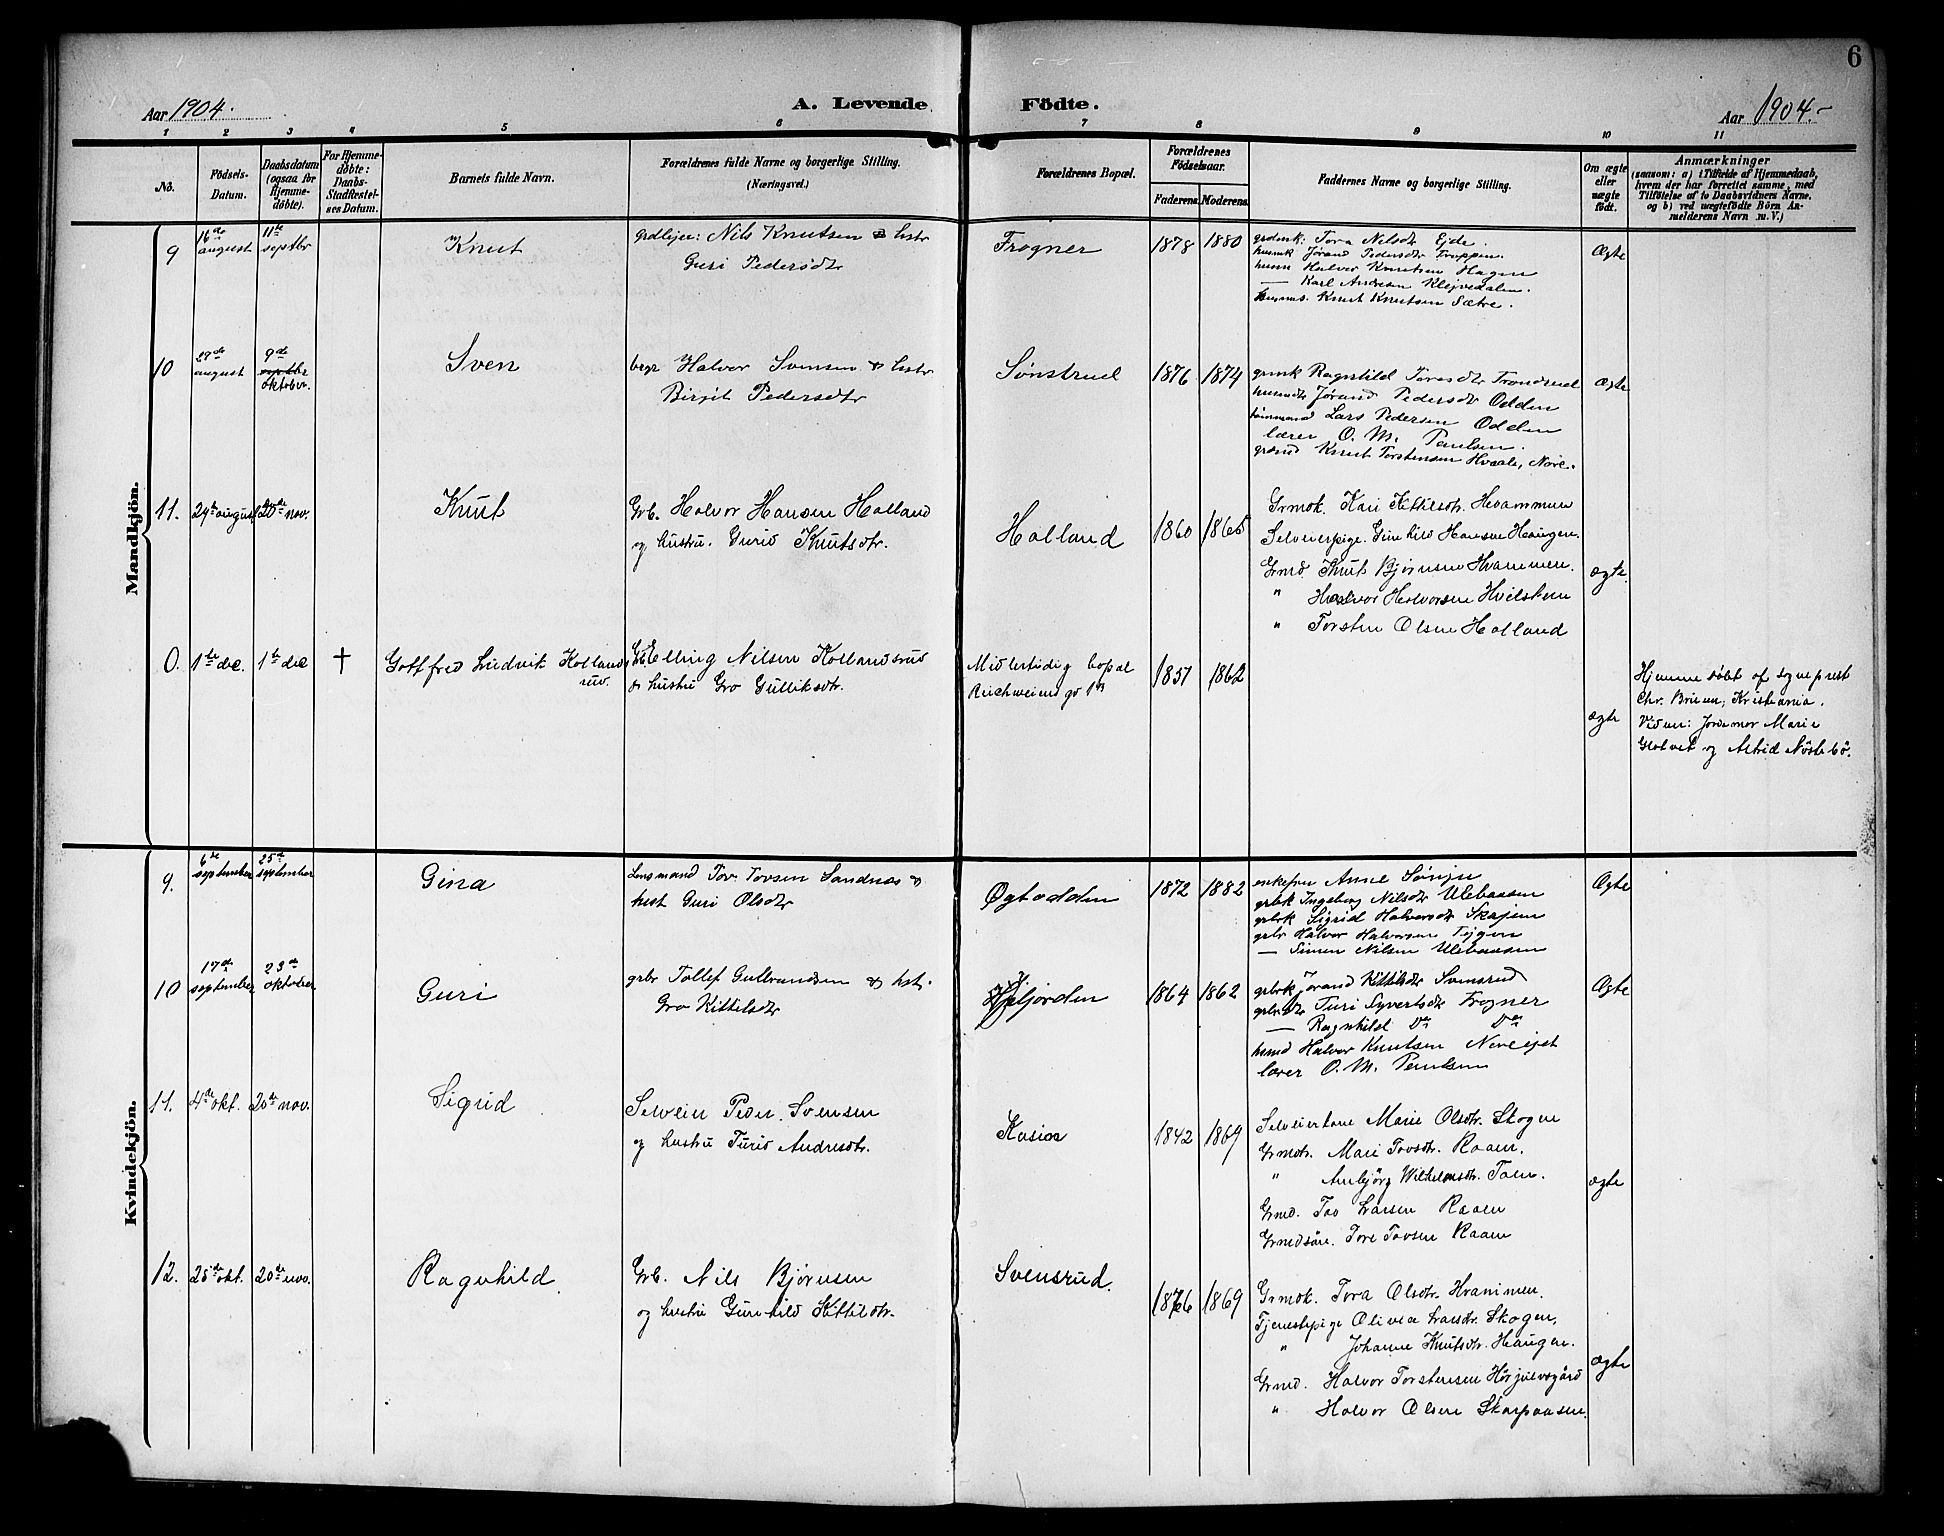 6
Aar 1904.
A. Levende
Födte.
Aar 1904.-
1 2 3 4 5 6 7 8 9 10 11
No.
Födsels-
Datum.
Daabsdatum
(ogsaa for
Hjemme-
döbte).
For Hjemme-
döbte:
Daabs-
Stadfæstel-
ses Datum.
Barnets fulde Navn.
Forældrenes fulde Navne og borgerlige Stilling.
(Næringsvei.)
Forældrenes Bopæl.
Forældrenes
Födselsaar.
Faderens. Moderens.
Faddernes Navne og borgerlige Stilling.
Om ægte
eller
uægte
födt.
Anmærkninger
(saasom: a) i Tilfælde af Hjemmedaab,
hvem der har forrettet samme, med
Tilföielse af to Daabsvidners Navne,
og b) ved uægtefödte Börn An-
melderens Navn m. V.)
Mandkjön.
9
16de
august
11te
septbr
Knut
Nils Knutsen & hstr
Guri Pedersdtr
Frogner
1878 1880
Tora Nilsdtr Ejde.
Jørand Pedersdtr Troppen.
Halvor Knutsen Hagen
— Karl Andresen Klejvedalen.
Knut Knutsen Sætre.
Ægte
10
29de
august
9de
septbr
oktober.
Sven
Halvor Svensen & hstr
Birgit Pedersdtr
Sønstrud
1876 1874
Ragnhild Toresdtr Trondrud
Jørand Pedersdtr Odden
Lars Pedersen Odden
lærer O. M. Paulsen.
Knut Torstensen Hvaale, Nore.
Ægte
11.
29de august
20de nov.
Knut
Grb. Halvor Hansen Holland
og hustru. Gurid Knutsdtr.
Holland
1860 1865
Grmok. Kari Kittilsdtr. Hvammen
Selveierpige. Gunhild Hansen Haugen.
Grmd. Knut Bjørnsen Hvammen.
" Halvor Halvorsen Hvilskem
" Torsten Olsen Holland
ægte.
0.
1ste dec.
1ste dec
†
Gottfred Ludvik Kollands
rud.
Elling Nilsen Kollandsrud
& hustru Gro Gulliksdtr.
Midlertidig bopæl
Reichweins gd 1B
1857 1862
ægte
Hjemmedøbt af sogneprest
Chr. Bruun, Kristiania.
Vidner: Jordemor Marie
Golvet og Astrid Nöstebö.
Kvindekjön.
9.
6de
september
25de
september
Gina
Lensmand Tov Tovsen Sandnæs &
hust Guri Olsdtr
Øgtodden
1872 1882
enkefru Anne
Ingeborg Nilsdtr Ulebaasen
Sigrid Halvorsdtr Skajem
Halvor Halvorsen Tejgen
— Simen Nilsen Ulebaasen
Ægte
10
17de
september
23de
oktober
Guri
grbr Tollef Gulbrandsen & hst.
Gro Kittilsdtr
1864 1862
Jørand Kittilsdtr Svensrud
Turi Syvertsdtr Frogner
— Ragnhild Do Do
Halvor Knutsen Norejet
lærer O. M. Paulsen
Ægte
11.
4de okt.
20de nov.
Sigrid
Selveier Peder Svensen
og hustru Turid Andresdtr.
Kasin
1842 1869
Selveierkone Marie Olsdtr. Skogen
Grmdtr. Mari Tovsdtr. Raaen.
" Anbjörg Wilhelmsdtr. Toen.
Grmd. Tov Larsen Raaen
Grmdsön. Tore Tovsen Raaen
ægte
12.
25de okt.
20de nov.
Ragnhild.
Grb. Nils Bjørnsen
og hustru Gunhild Kittilsdtr.
Svensrud.
1866 1869
Grmok. Tora Olsdtr. Hvammen.
Tjenestepige Olivea Larsdtr. Skogen.
" Johanne Knutsdtr. Haugen.
Grmd. Halvor Torstensen Hörjulvsgård
" Halvor Olsen Skarpaasen.
ægte